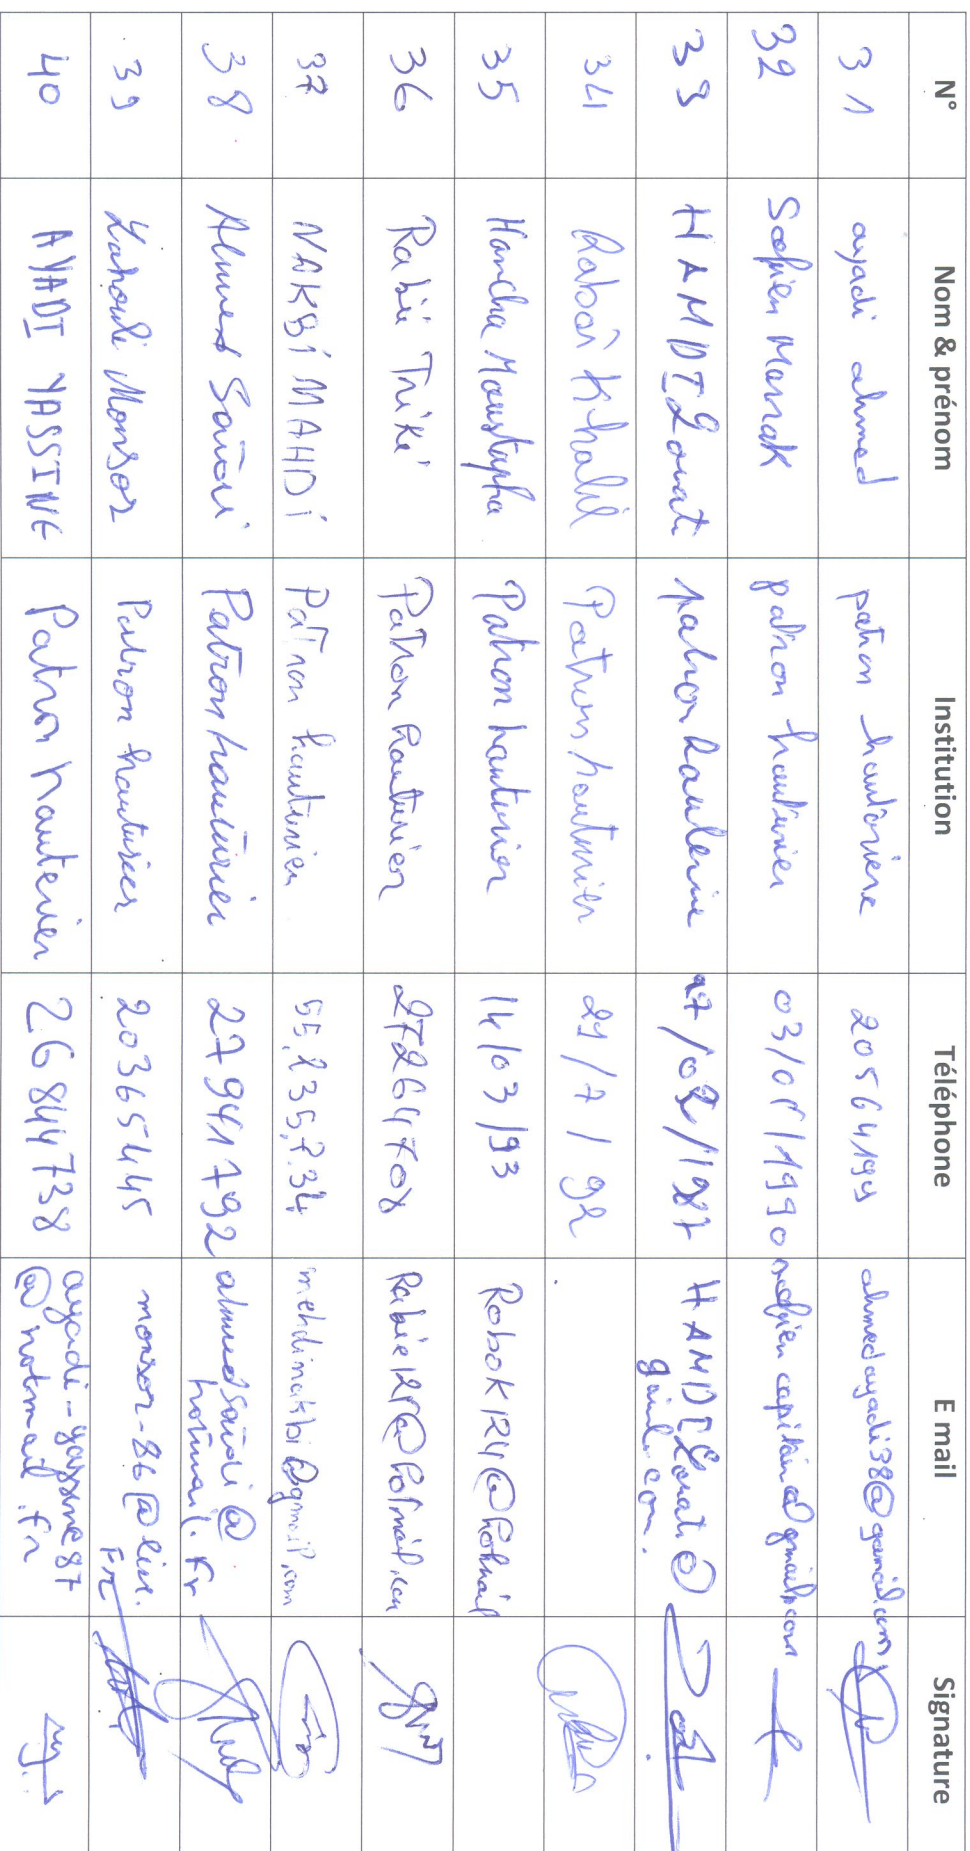 N° Nom & prénom Institution Téléphone E mail Signature
31 ayadi ahmed patron hauturière 20564199 ahmedayadi38@gmail.com
32 Sofien Marrak patron hauturier 03/01/1990 sofien capitain@gmail.com
33 HAMDI Zouati patron hauturie 17/02/1987 HAMDI Zouati@
gmail.com.
34 Khalil Patron hauturier 29/7/92
35 Hancha Moustapha Patron hauturier 14/03/93 Robok124@hotmail
36 Rabii Triki Patron hauturier 27264708 @hotmail.com
37 NAKBI MAHDI Patron hauturier 55.235.734 mehdinakbi@gmail.com
38 Ahmed Patron hauturier 27941792 @
hotmail.fr
39 Monsor Patron hauturier 20365445 monsor-86@live.
Fr
40 AYADI YASSINE Patron hauturier 26844738 ayadi-yassine87
@hotmail.fr